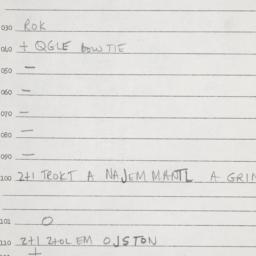 030 ROK
040 + QGLE BOW TIE
050 —
060 —
070 —
080 —
090 —
100 2+1 TROKT A NAJEM MANTL A GRIN
101 O
110 2+1 2+OL EM OJSTON
+